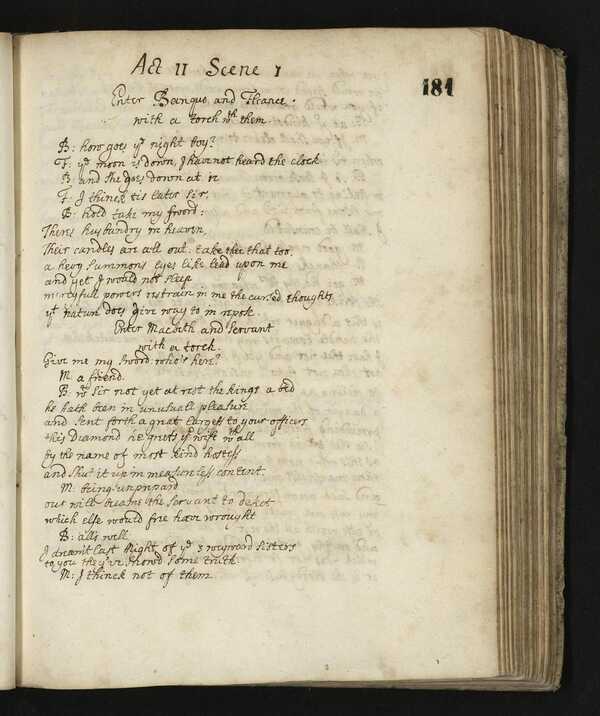 Act II Scene 1
181
Enter Banquo and Fleance
with a torch wth them.
B: how goes ye night boy?
F: ye moon is down, I have not heard the clock
B: and she goes down at 12
F: I thinck tis later Sir.
B: hold take my sword:
Theres husbandry in heaven,
Their candles are all out: take thee that too,
a hevy summons lyes like lead upon me
and yet I would not sleep
mercyfull powers restrain in me the cursed thoughts
yt nature does give way to in repose.
Enter Macbeth and Servant
with a torch.
Give me my sword: who's here?
M: a friend.
B: Sir not yet at rest the kings a bed
he hath been in unusuall pleasure
and sent forth a great larges to your officers
this Diamond he greets yr wife wth all
by the name of most kind hostess
and shut it up in measureless content.
M: being unprepard
our will became the servant to defect
which else would free have wrought
B: alls well.
I dreamt last night of ye 3 weyward sisters
to you they've showd some truth.
M: I thinck not of them.